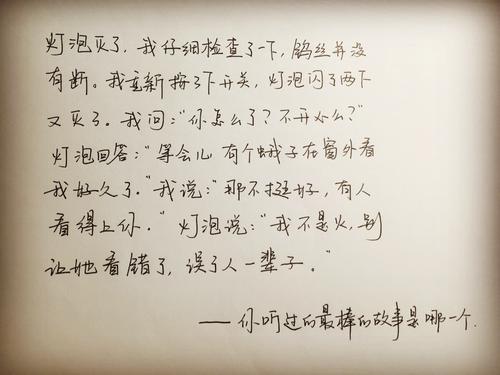 灯泡灭了，我仔细检查了一下，钨丝并没
有断。我重新按了下开关，灯泡闪了两下
又灭了。我问：“你怎么了？不开心么？”
灯泡回答：“等会儿 有个蛾子在窗外看
我好久了。”我说：“那不挺好，有人
看得上你。”灯泡说：“我不是火，别
让她看错了，误了人一辈子。”
——你听过的最棒的故事是哪一个.